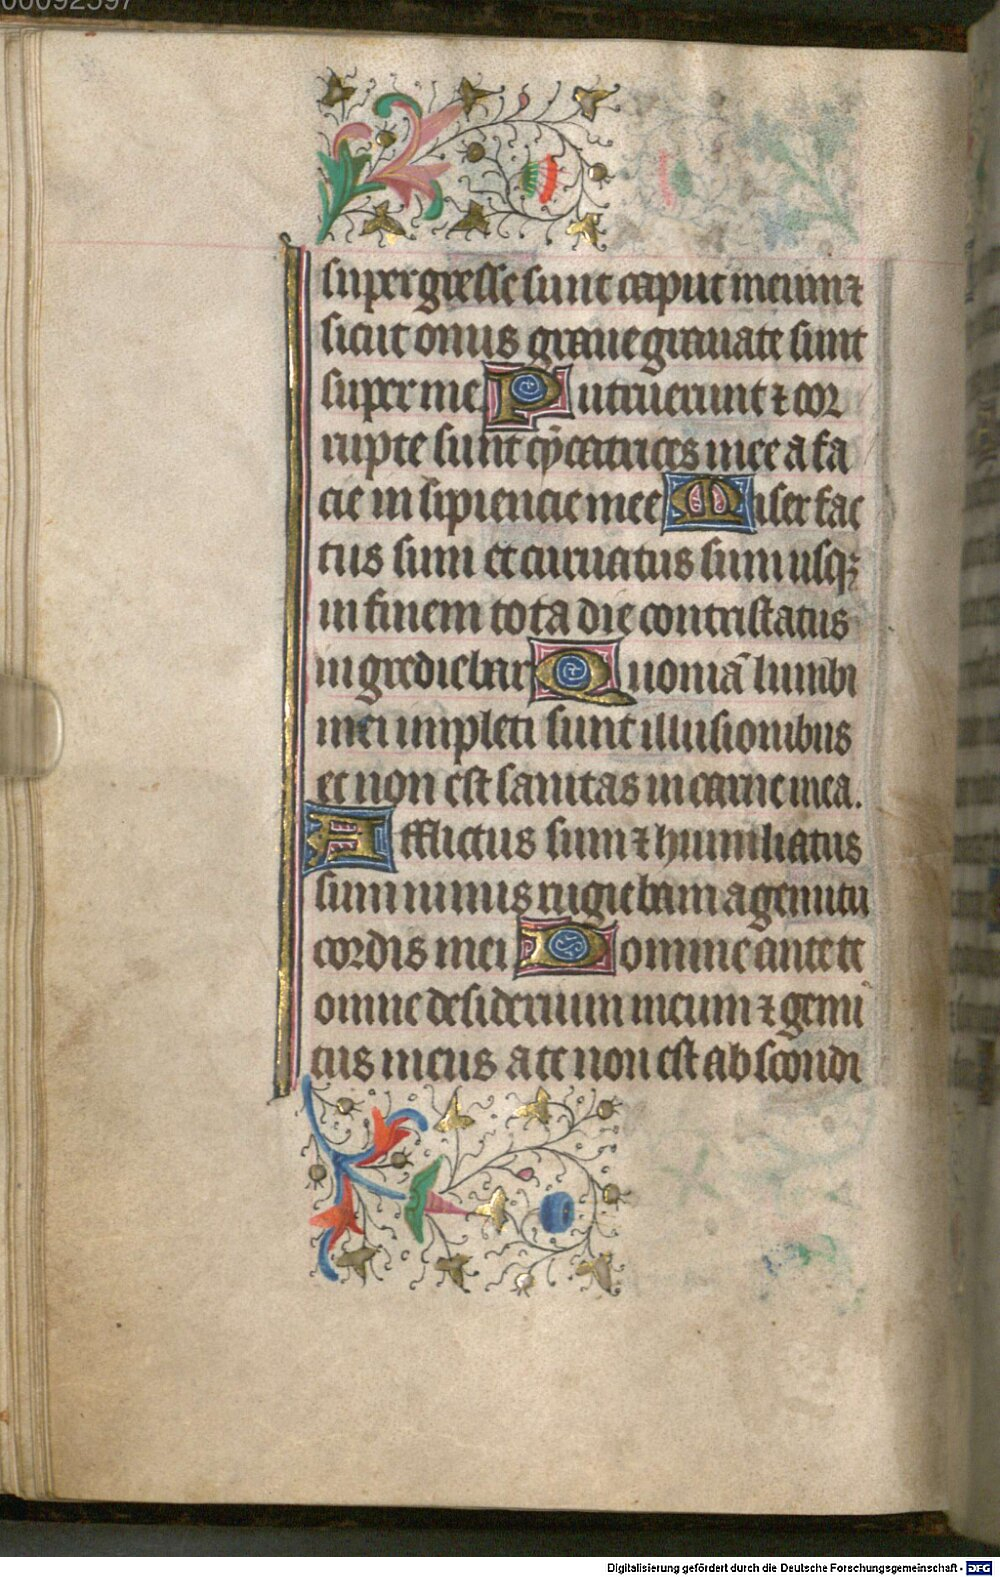 00092597
supergresse sunt caput meum ⁊
sicut onus graue grauate sunt
super me Putruerunt ⁊ cor
rupte sunt cycatrices mee a fa
cie in sipiencie mee Miser fac
tus sum et curuatus sum usqꝫ
in finem tota die contristatus
in grediebar Quoniā lumbi
mei impleti sunt illusionibus
et non est sanitas in carne mea.
Afflictus sum ⁊ humiliatus
sum nimis rugiebam a gemitu
cordis mei Domine ante te
omne desiderium meum ⁊ gemi
tus meus a te non est ab scondi
Digitalisierung gefördert durch die Deutsche Forschungsgemeinschaft - DFG